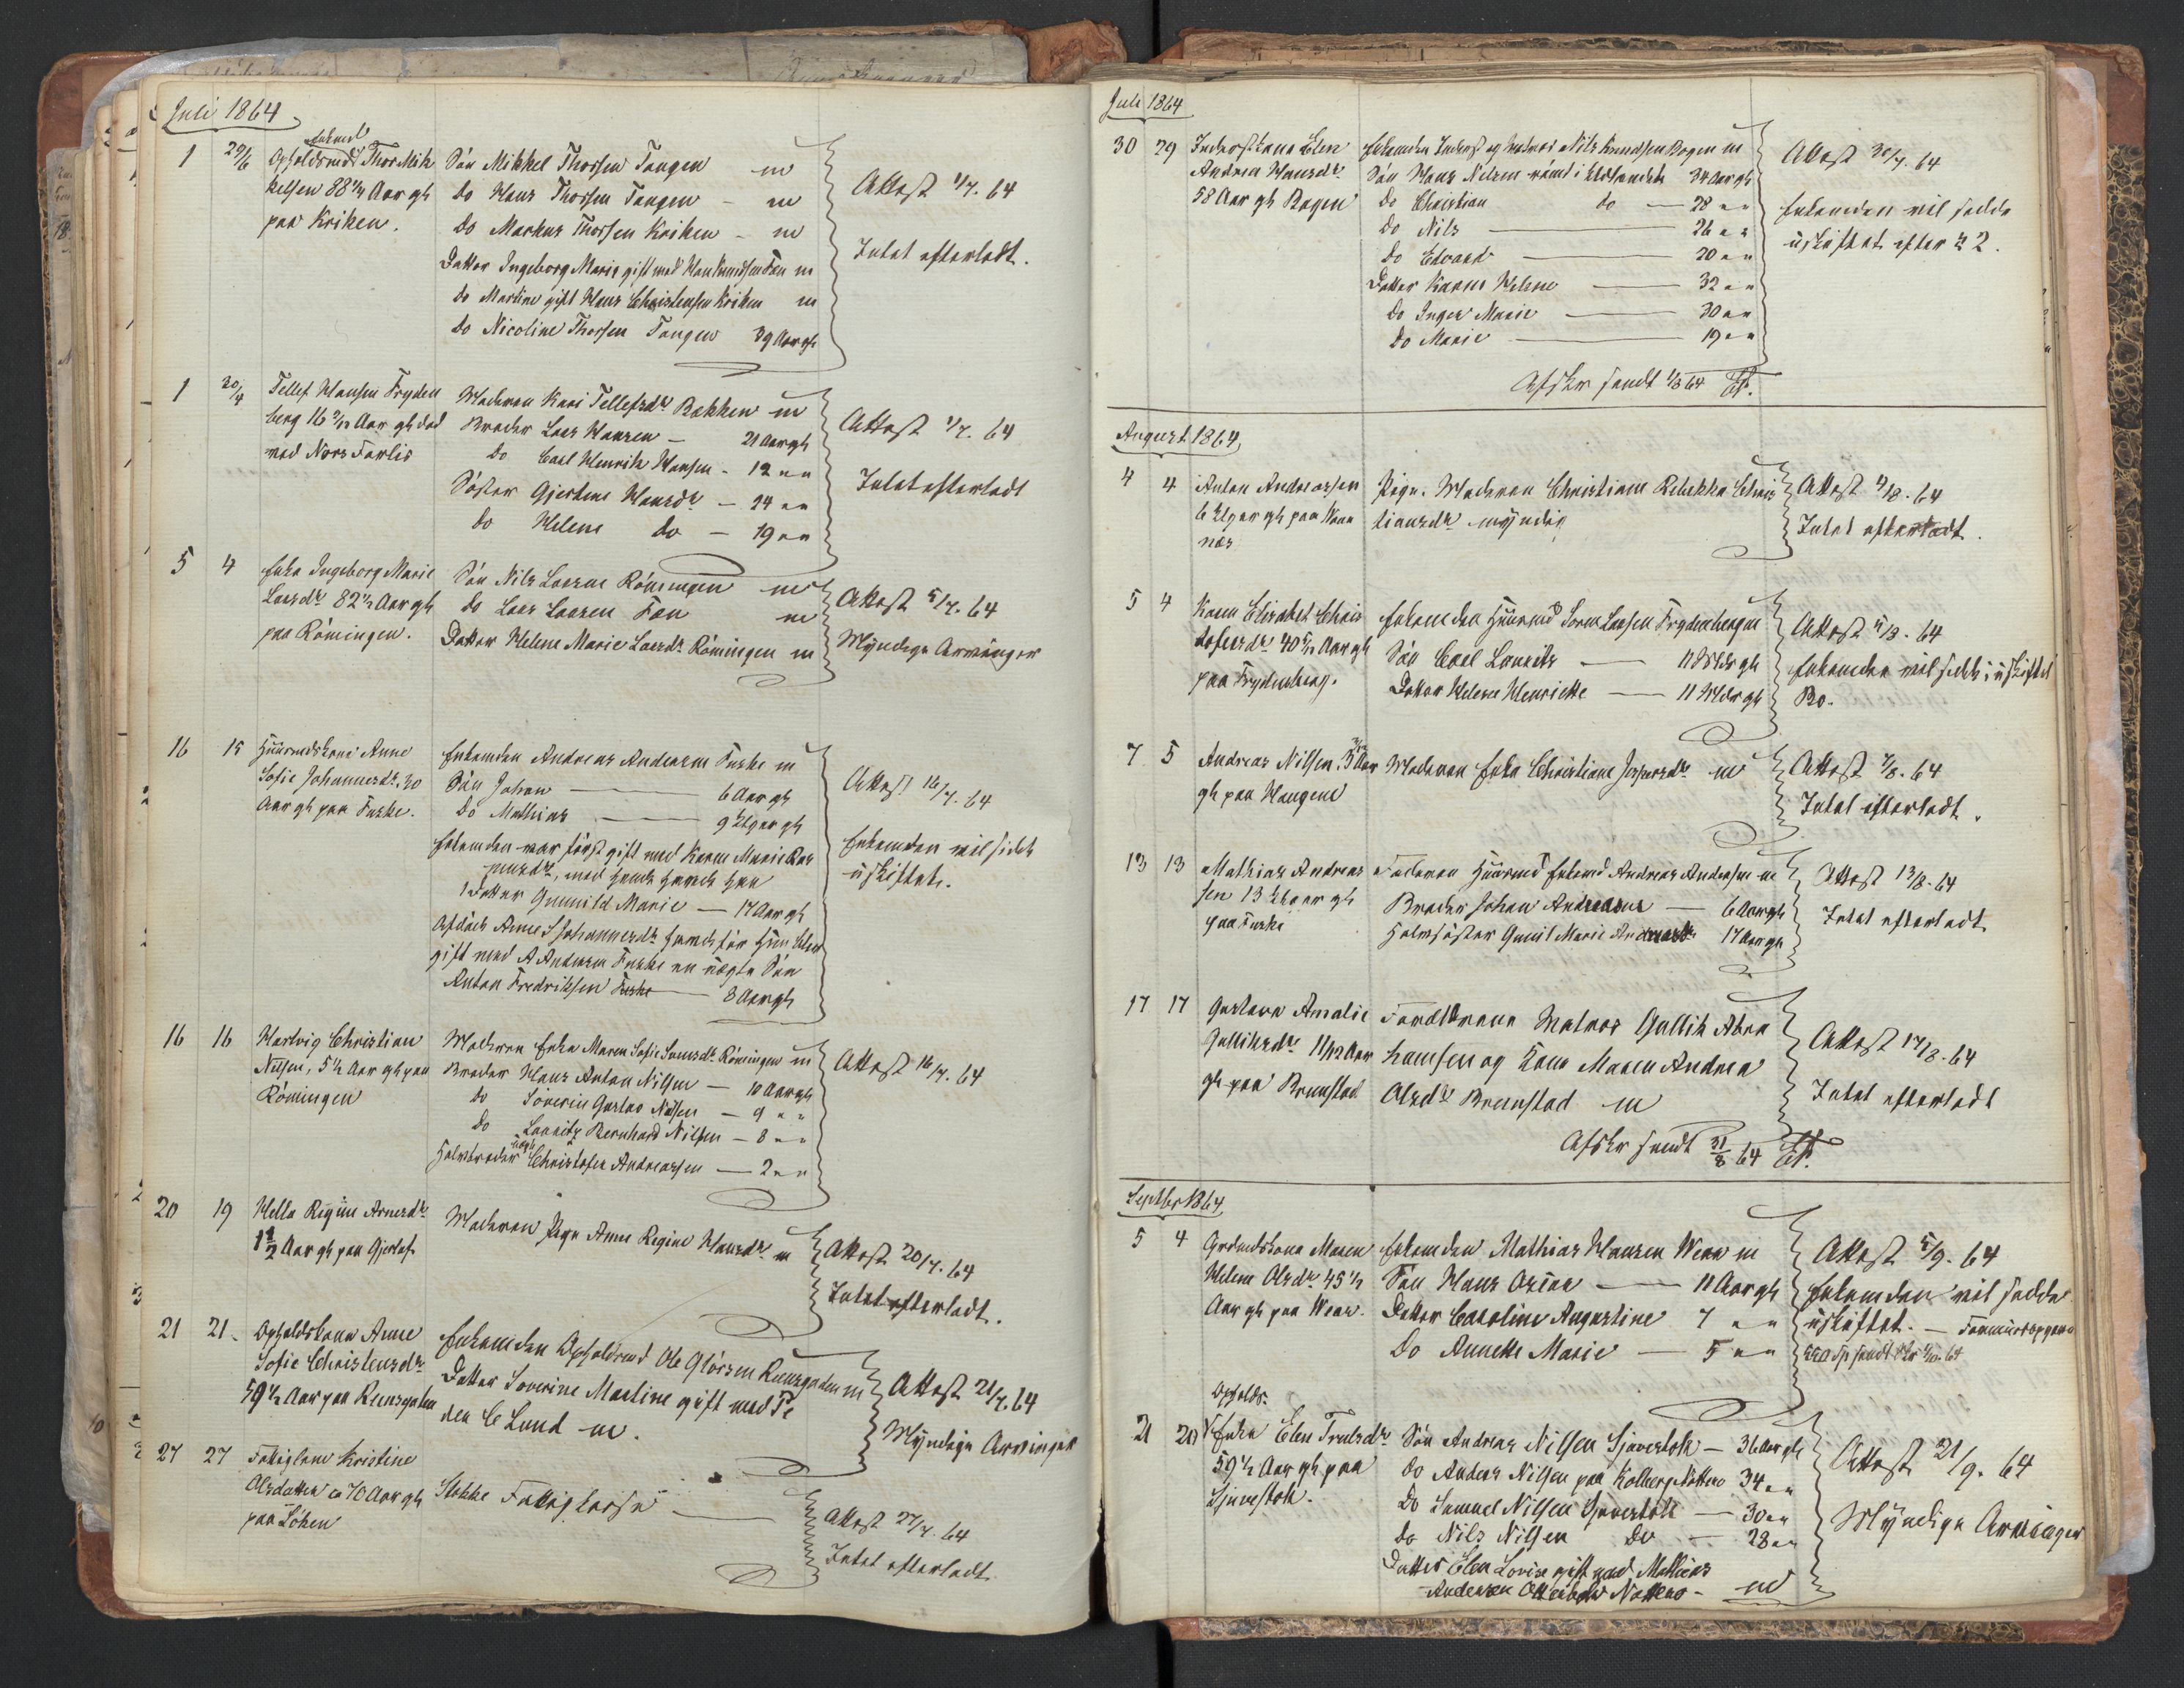 Juli 1864
1 29/6 Opholdsmd Enkemd Thor Mik
kelsen 88 1/2 Aar gl
paa Kriken.
Søn Mikkel Thorsen Tangen m
do Hans Thorsen Tangen - m
do Markus Thorsen Kriken - m
Datter Ingeborg Marie gift med Knudsen Føn m
do Martine gift Hans Christensen Kriken m
do Nicoline Thorsen Tangen 39 Aar gl
Attest 1/7. 64
Intet efterladt.
1 30/4 Tellef Hansen Fryden
berg 16 Aar gl død
ved Nors Farlis
Moderen Kari Tellefsdr Bakken m
Broder Lars Hansen - 21 Aar gl
do Carl Henrik Hansen - 12 " "
Søster Gjertine Hansdr - 24 " "
do Helene do - 19 " "
Attest 1/7. 64
Intet efterladt
5 4 Enke Ingeborg Marie
Larsdr 82 1/2 Aar gl
paa Rømingen.
Søn Nils Larsen Rømingen m
do Lars Larsen Føn m
Datter Helene Marie Larsdr Rømingen m
Attest 5/7. 64
Myndige Arvinger
16 15 Huusmdskone Anne
Sofie Johannesdr 30
Aar gl paa Fuske.
Enkemden Andreas Andersen Fuske m
Søn Johan 6 Aar gl
do Mathias 9 Uger gl
Enkemden var først gift med Karen Marie Ras
musdr, med hende havde han
1 Datter Gunnild Marie - 17 Aar gl
Afdøde Anne S Johannesdr havde før hun blev
gift med A Andersen Fuske en uægte Søn
Anton Fredriksen Fuske 8 Aar gl
Attest 16/7. 64
Enkemden vil sidde
uskiftet.
16 16 Hartvig Christian
Nilsen, 5 1/2 Aar gl paa
Rømingen
Moderen Enke Maren Sofie Rømingen m
Broder Hans Anton Nilsen - 10 Aar gl
do Soverin Gustav Nilsen - 9 " "
do Lauritz Bernhard Nilsen - 8 " "
Halvbroder uægte Christofer Andreassen - 2 " "
Attest 16/7. 64
20 19 Hella Regine Arnesdr
1 1/2 Aar gl paa Gjerløs
Moderen Pige Anne Regine Hansdr m
Attest 20/7. 64
Intet efterladt.
21 21 Opholdskone Anne
Sofie Christensdr
59 1/2 Aar paa Ruusgaden
Enkemden Opholdsmd Ole Glórsen Ruusgaden m
Datter Soverine Martine gift med Pe
der C Lund m.
Attest 21/7. 64
Myndige Arvinger
27 27 Fattiglem Kristine
Olsdatter ca 70 Aar gl
paa Løken
Stokke Fattigkasse
Attest 27/7. 64
Intet efterladt.
Juli 1864
30 29 Inderstkone Elen
Andrea Hansdr
58 Aar gl Bogen
Enkemden Inderst og Matros Nils Knudsen Bogen m
Søn Hans Nilsen rømt i Udlandet 34 Aar gl
do Christian do - 28 " "
do Nils 26 " "
do Edvard 20 " "
Datter Karen Helene 32 " "
do Inger Marie 30 " "
do Marie 19 " "
Attest 30/7. 64
Enkemden vil sidde
uskiftet efter § 2.
Afskr sendt 1/8 64
August 1864
4 4 Anton Andreassen
6 Uger gl paa Vaa
nes
Pige. Moderen Christiane Rebekka Chris
tiansdr myndig
Attest 4/8. 64
Intet efterladt.
5 4 Karen Elisabet Chris
tofersdr 40 5/12 Aar gl
paa Frydenberg.
Enkemden Huusmd Soren Larsen Frydenberg m
Søn Carl Lauritz 11 Mdr gl
Datter Helene Henriette 11 Mdr gl
Attest 5/8. 64
Enkemden vil sidde i uskiftet
Bo.
7 5 Andreas Nilsen Aar
gl paa Haugene
Moderen Enke Christiane Jespersdr m
Attest 7/8. 64
Intet efterladt.
13 13 Mathias Andreas
sen 13 Uger gl
paa Fuske
Faderen Huusmd Enkemd Andreas Andersen m
Broder Johan Andreasen 6 Aar gl
Halvsøster Gunil Marie Andreasdr 17 Aar gl
Attest 13/8. 64
Intet efterladt.
17 17 Gustava Amalie
Gulliksdr 11/12 Aar
gl paa Brunstad
Forældrene Matros Gullik Abra
hamsen og Kone Maren Andrea
Olsdr Brunstad m
Attest 17/8. 64
Intet efterladt
Afskr sendt 31/8 64
Septbr 1864
5 4 Grdmdskone Maren
Helene Olsdr 45 1/2
Aar gl paa Wear.
Enkemden Mathias Hansen Wear m
Søn Hans Oscar 11 Aar gl
Datter Caroline Augustine 7 " "
do Annette Marie - 5 " "
Attest 5/9. 64
Enkemden vil sidde
uskiftet. - Formuesopgave
21 20 Opholds-
Enke Elen Trulsdr
59 1/2 Aar gl paa
Sjuestok.
Søn Andreas Nilsen Sjuestok - 36 Aar gl
do Anders Nilsen paa Kolberg Nøttero 34 " "
do Samuel Nilsen Sjuestok - 30 " "
do Nils Nilsen do - 28 " "
Datter Elen Lovise gift med Mathias
Andersen Nøttero - m
Attest 21/9. 64
Myndige Arvinger